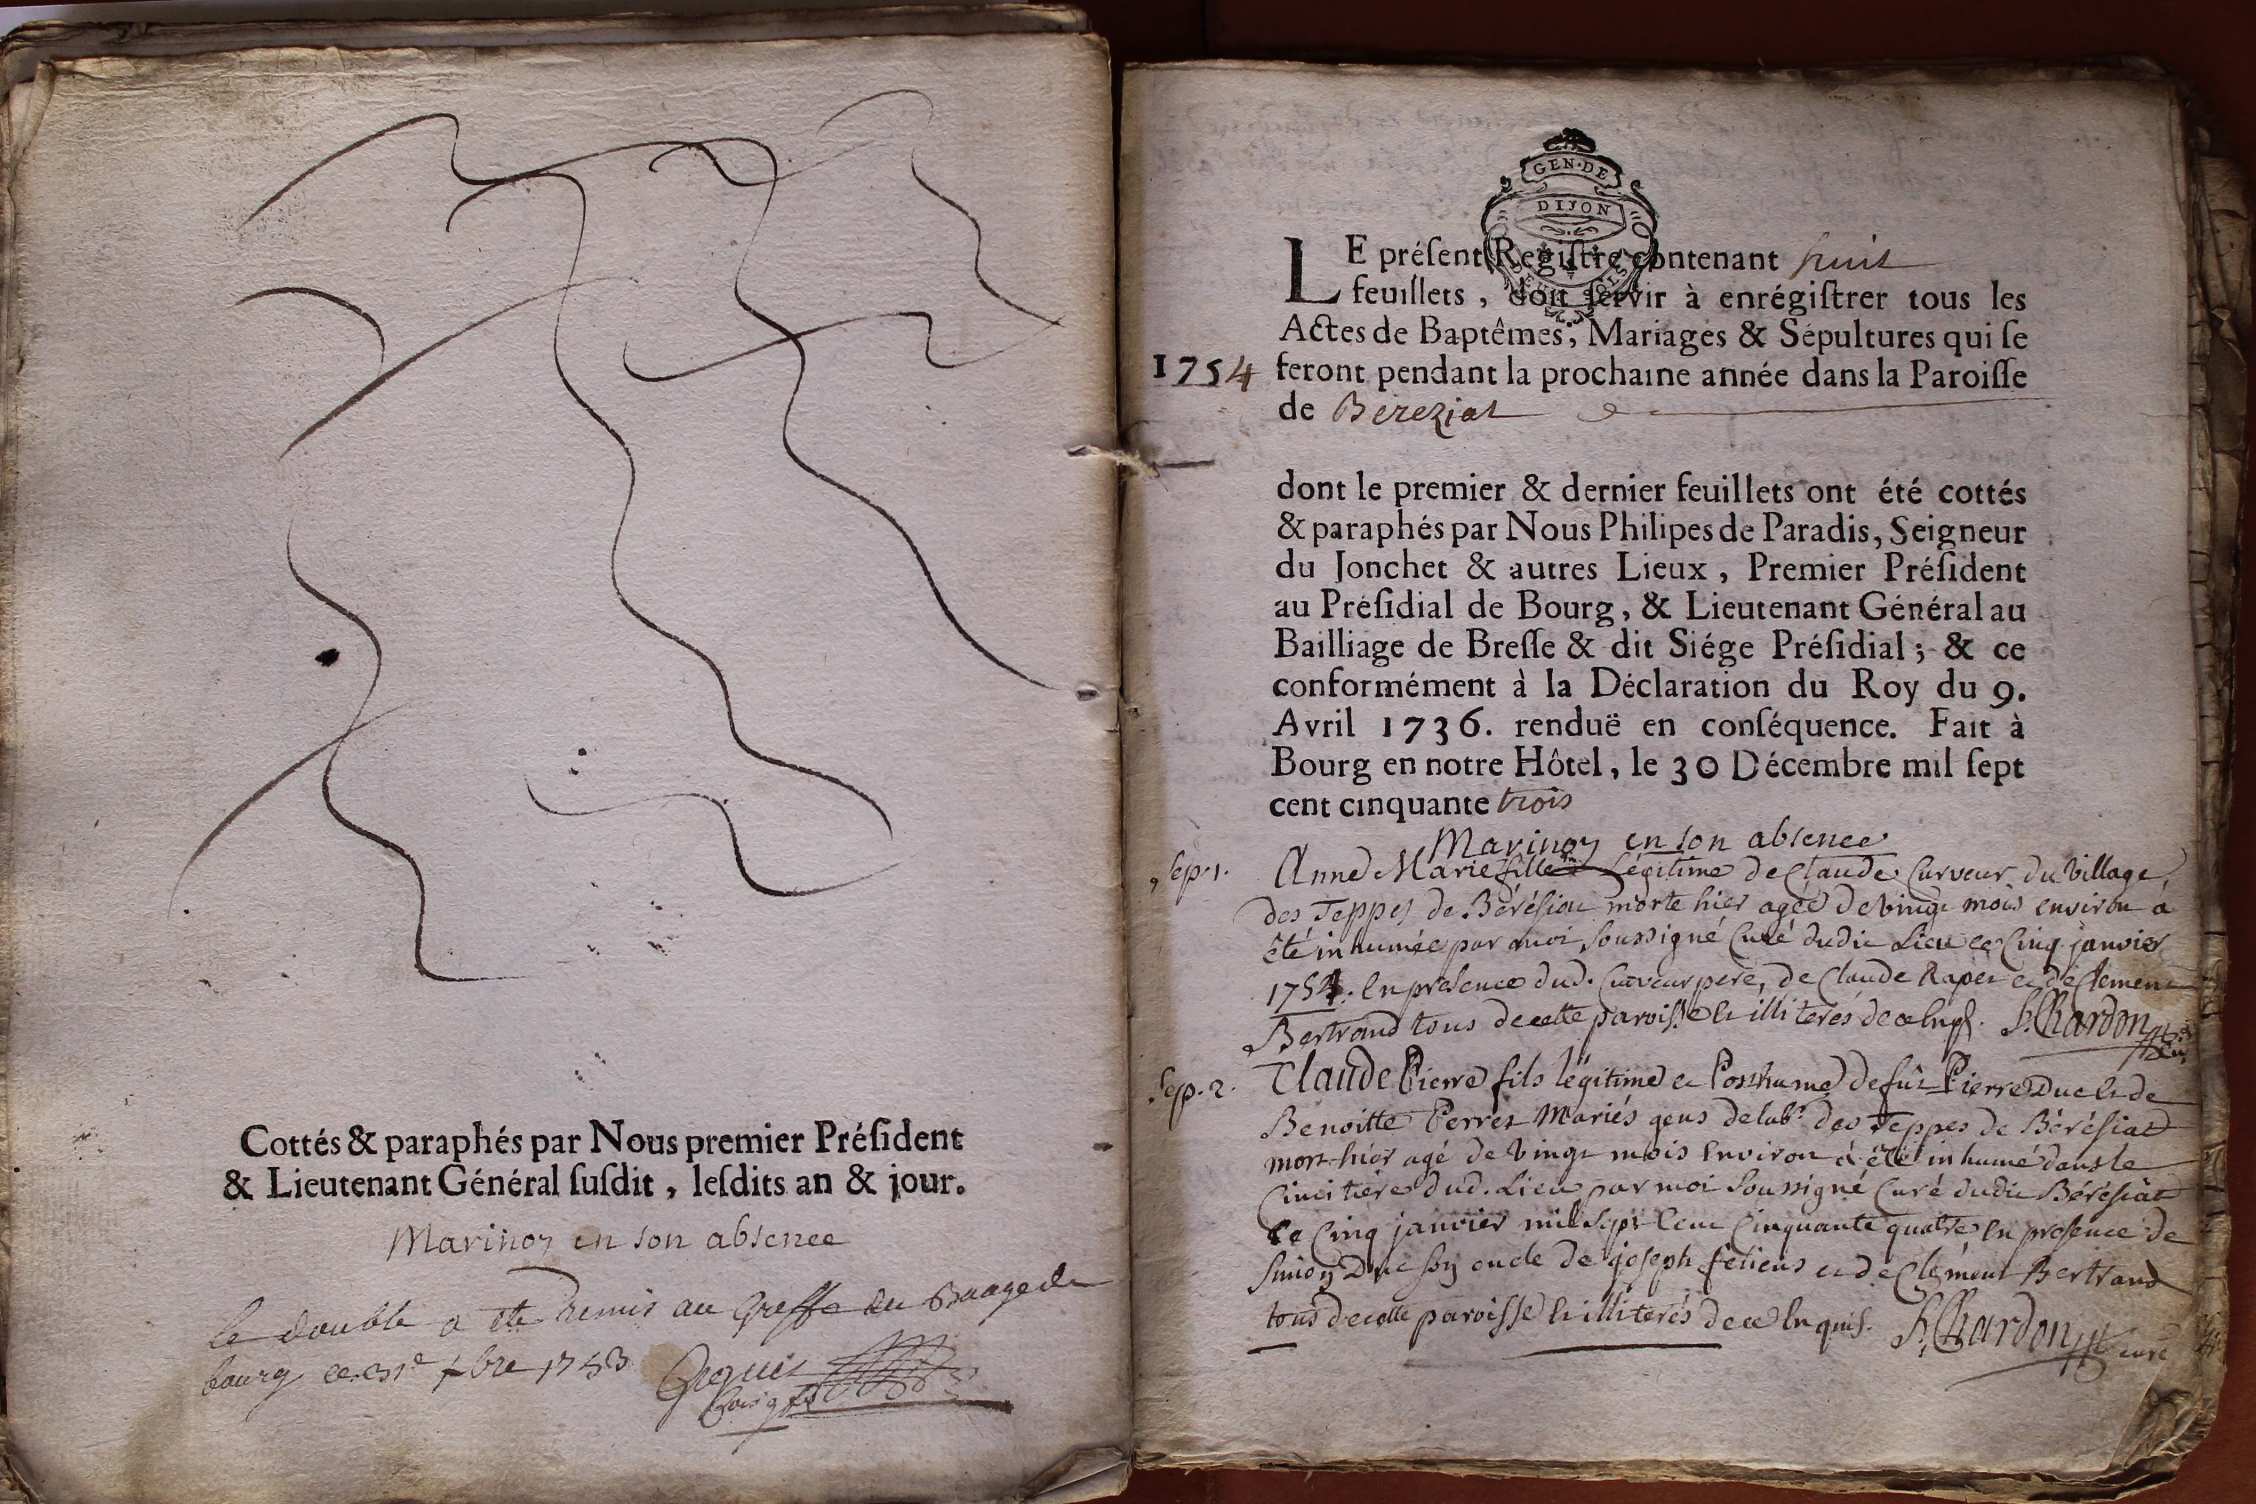 Cottés & paraphés par Nous premier Préſident
& Lieutenant Général ſuſdit, leſdits an & jour.
Marinon en son absence
le double a ete remis au Greffe du Baage de
bourg ce 31e xbre 1753
GEN·DE
DIJON
LE préſent Regiſtre contenant huit
feuillets, doit ſervir à enrégiſtrer tous les
Actes de Baptêmes, Mariages & Sépultures qui ſe
1754 feront pendant la prochaine année dans la Paroiſſe
de Bereziat
dont le premier & dernier feuillets ont été cottés
& paraphés par Nous Philipes de Paradis, Seigneur
du Jonchet & autres Lieux, Premier Préſident
au Préſidial de Bourg, & Lieutenant Général au
Bailliage de Breſſe & dit Siége Préſidial; & ce
conformément à la Déclaration du Roy du 9.
Avril 1736. renduë en conſéquence. Fait à
Bourg en notre Hôtel, le 30 Décembre mil ſept
cent cinquante trois
Marinon en son absence
Sep. 1. Anne Marie fille Légitime de Claude Curveur du Village
des Teppes de Bérésiat morte hier agée de vingt mois environ a
été inhumée par moi soussigné Curé dudit Lieu ce Cinq janvier
1754. En presence dud. Curveur pere, de Claude Raper et de Clement
Bertrand tous de cette paroisse et illiterés de ce Enqs. S. Chardon
Sep. 2. Claude Pierre fils légitime et Posthume de fût Pierre Duc et de
Benoitte Perret Mariés gens de labr. des Teppes de Bérésiat
mort hier agé de vingt mois Environ à été inhumé dans le
Cimitiere dud. Lieu par moi Soussigné Curé dudit Bérésiat
Ce Cinq janvier mil Sept Cent Cinquante quatre En presence de
Simon Duc son oncle de joseph feliens et de Clément Bertrand
tous de cette paroisse et illiterés de ce Enquis. S. Chardon curé